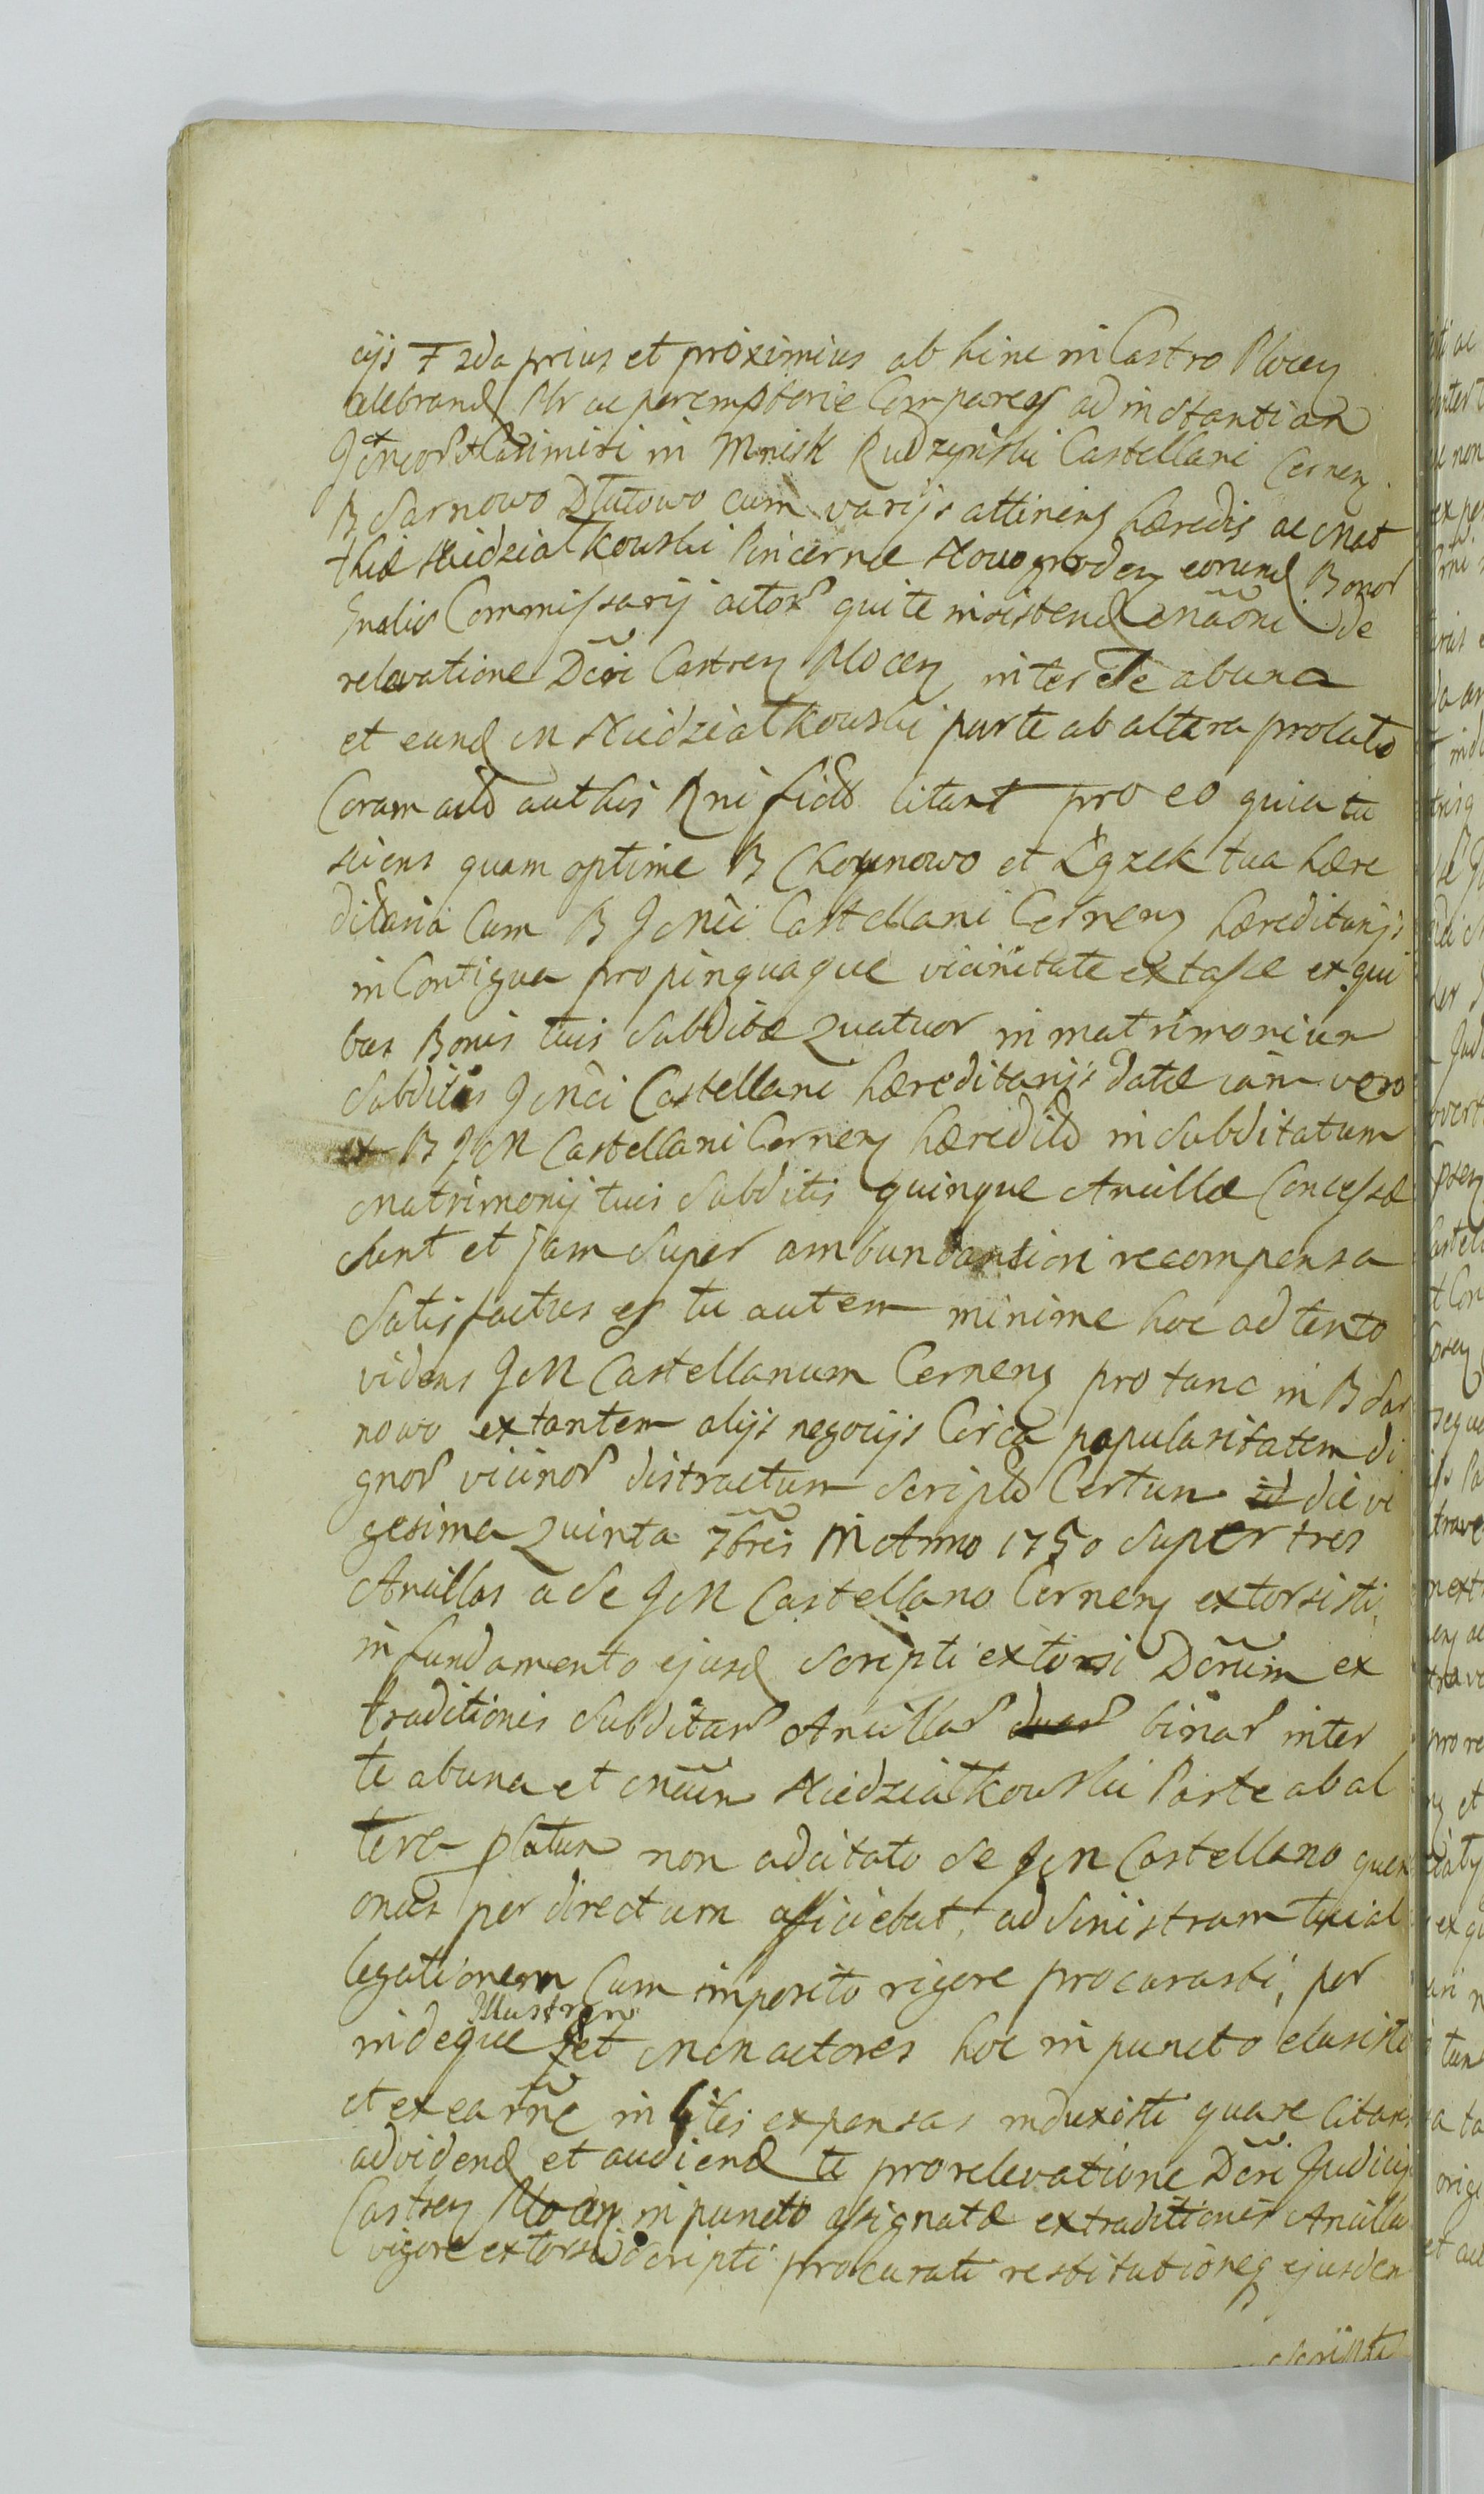 cijs F 2da prius et proximius ab hinc in Castro Plocen
celebrand Plr ac peremptorie Compareas ad instantiam
Casimiri in Mnisk Rudzynski Castellani Cernen
B Sarnowo Dłutowo cum varijs attinens hæredis ac Mat
thiæ Niedziałkowski Pincernæ Novogroden eorund Bonor
Gnalis Commissarij actor qui te insistend de
relevatione Dcri Castren Plocen inter Te ab una
et eund M Niedziałkowski parte ab altera prolato
Coram citant pro eo quia tu
sciens quam optime B Choynowo et Łązek tua hære
ditaria Cum B JMci Castellani Cernen hæreditarijs
in Contigua propinquaque vicinitate extasse ex qui
bus Bonis tuis Subditæ quatuor in matrimonium
Subditis JMci Castellani hæreditarijs datæ iam vero
ex B JM Castellani Cernen hæredit in Subditatum
Matrimonij tuis Subditis quinque Ancillæ Concessæ
Sunt et jam Super ambundantiori recompensa
Satisfactus es tu autem minime hoc adtento
videns JM Castellanum Cernen pro tunc in B Sar
nowo extantem alijs negocijs Circa popularitatem di
gnor vicinor distractum Scriptu Certum die vi
gesima quinta 7bris in Anno 1750 Super tres
Ancillas a Se JM Castellano Cernen extorsisti,
in fundamento ejusd Scripti extorsi Dcrum ex
traditionis Subditar Ancillar binar inter
te ab una et Niedziałkowski Parte ab al
tera platum non adcitato Se JM Castellano quem
onus per directum afficiebat, ad Sinistram tui al
legationem Cum imposito rigore procurasti, per
Illustrem
indeque et Mcn actores hoc in puncto elusisti
et ex ea rne in litis expensas induxisti quare citaris
ad vidend et audiend te pro relevatione Dcri Judicij
Castren Plocen in puncto assignatæ extraditionis Ancillar
vigore extorsi Scripti procurati restitutioneq ejusdem
Scripti